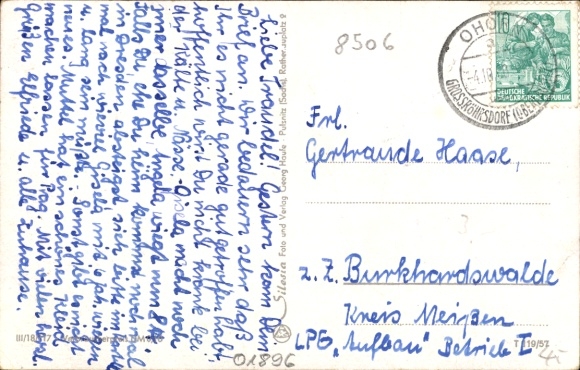 Liebe Traudel! Gestern kam Dein
Brief an. Wir bedauern sehr daß
Ihr es nicht gerade gut getroffen habt,
hoffentlich wirst Du nicht krank bei
der Kälte u. Nässe. Gisela macht noch
immer dasselbe, Ursula wiegt nun 8
Falls Du ehe Du heim kommst noch mal
in Dresden absteigst sieh bitte im
mal nach wieviel Gisela mit
u. lang sein müßte. Sonst gibt es nicht
neues. Mutti hat ein schönes Kleid
machen lassen, für Tag. Mit vielen herzl.
Grüßen Elfriede u. alle Zuhause.
Silesia Foto und Verlag Georg Haufe · Pulsnitz (Sachs), Rathenauplatz 2
III/18/17
8506
OHO
-4.10
GROSSRÖHRSDORF (
10
DEUTSCHE
DEMOKRATISCHE REPUBLIK
Frl.
Gertraude Haase,
z. Z. Burkhardswalde
Kreis Meißen
LPG „Aufbau" Betrieb I
T 119/57
01896
4,-